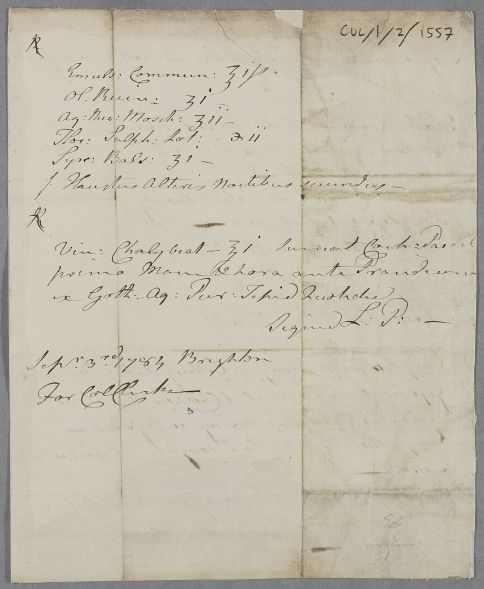 CUL/1/2/1557
℞
Emuls: Commun: ℥iſs.
Ol. Ricin: ʒi
Aq: Nuc: Mosch: ʒii –
Flor: Sulph: Lot: – ℈ii
Syr: Bals: ʒi –
f. Haustus Alteris Noctibus sumendus –
℞
Vin: Chalybeat – ℥i Sumat Coch:
primo Mane & hora ante Prandium
ex Aq: Pur: Tepid
Signed L: P: –
Sepr. 3rd. 1784 Brighton
For Col